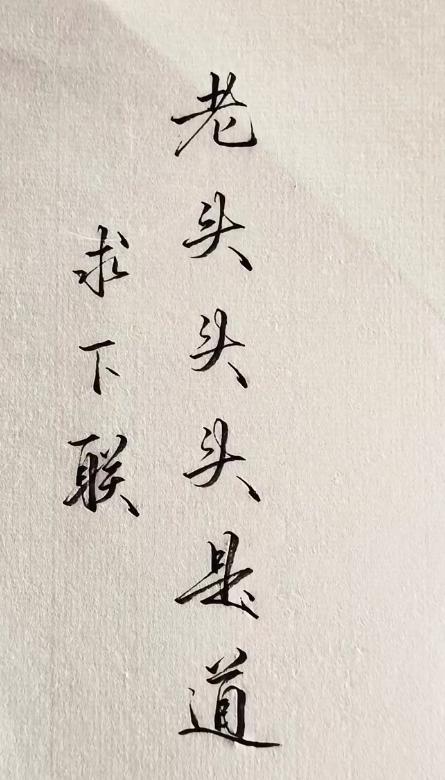 老头头头是道
求下联